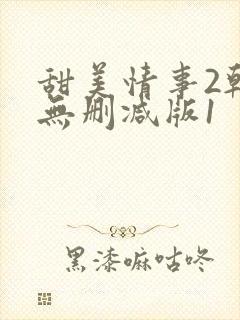 甜美情事2韩
無删减版1
黑漆嘛咕咚